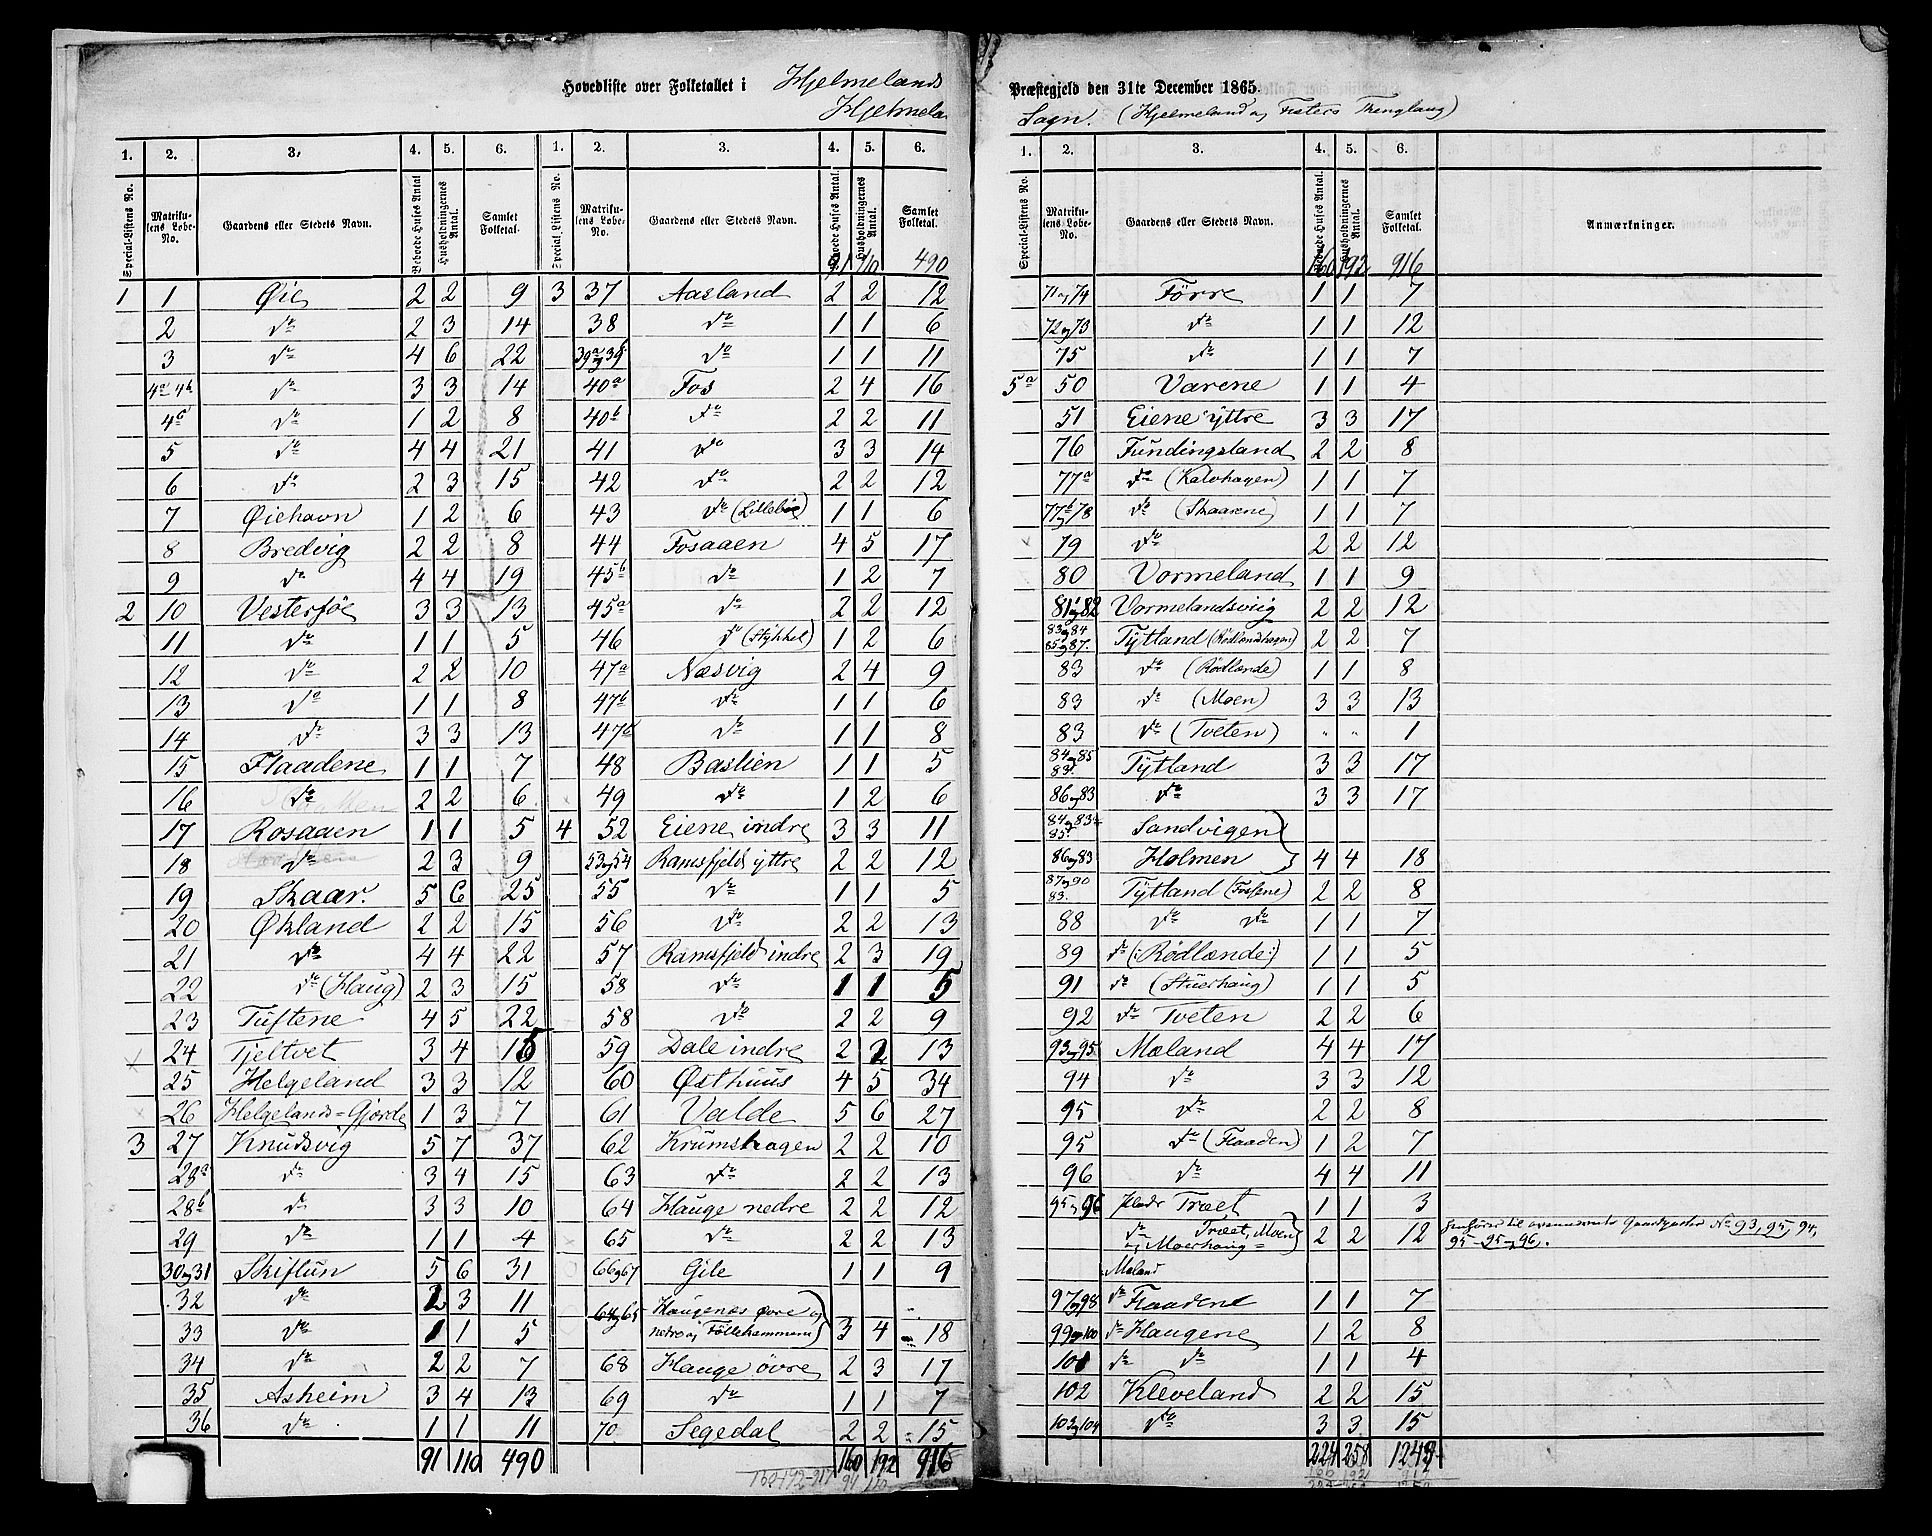 Hovedliste over Folketallet i Hjelmelands
Hjelmela
Præstegjeld den 31te December 1865.
Sogn. (Hjelmeland og Fisters Thenglaug)
1. 2. 3. 4. 5. 6. 1. 2. 3. 4. 5. 6.
Special-Listens No. Matrikulens Løbe-No. Gaardens eller Stedets Navn. Beboede Huses Antal Husholdningernes Antal. Samlet Folketal. Special-Listens No. Matrikulens Løbe-No. Gaardens eller Stedets Navn. Beboede Huses Antal. Husholdningernes Antal. Samlet Folketal.
91 110 490
1 1 Øie 2 2 9 3 37 Aasland 2 2 12
2 do 2 3 14 38 do 1 1 6
3 do 4 6 22 39a og 39b do 1 1 11
4a 4b do 3 3 14 40a Fos 2 4 16
4c do 1 2 8 40b do 2 2 11
5 do 4 4 21 41 do 3 3 14
6 do 2 3 15 42 do 2 2 12
7 Øiehavn 1 2 6 43 do (Lillebøe) 1 1 6
8 Bredvig 2 2 8 44 Fosaaen 4 5 17
9 do 4 4 19 45b do 1 2 7
2 10 Vesterføe 3 3 13 45a do 2 2 12
11 do 1 1 5 46 do (Stykkel) 1 2 6
12 do 2 2 10 47a Næsvig 2 4 9
13 do 1 1 8 47b do 1 1 6
14 do 3 3 13 47c do 1 1 8
15 Flaadene 1 1 7 48 Bastlien 1 1 5
16 do 2 2 6 49 do 1 2 6
17 Rosaaen 1 1 5 4 52 Eiene indre 3 3 11
18 do 2 3 9 53og54 Ramsfjeld yttre 2 2 12
19 Skaar. 5 6 25 55 do 1 1 5
20 Økland 2 2 15 56 do 2 2 13
21 do 4 4 22 57 Ramsfjeld indre 2 3 19
22 do (Haug) 2 3 15 58 do 1 1 5
23 Tuftene 4 5 22 58 do 2 2 9
24 Tjeltvet 3 4 15 59 Dale indre 2 2 13
25 Helgeland 3 3 12 60 Østhuus 4 5 34
26 Helgelands=Gjørde 1 3 7 61 Valde 5 6 27
3 27 Knudsvig 5 7 37 62 Krumshagen 2 2 10
28a do 3 4 15 63 do 2 2 13
28b do 3 3 10 64 Hauge nedre 2 2 12
29 do 1 1 4 65 do 2 2 13
30og31 Skiftun 5 6 31 66og67 Gile 1 1 9
32 do 2 3 11 64og65 Haugenæs øvre og
33 do 1 1 5 nedre og Føllehammeren 3 4 18
34 do 2 2 7 68 Hauge øvre 2 3 17
35 Asheim 3 4 13 69 do 1 1 7
36 do 1 1 11 70 Segedal 2 2 15
91 110 490 160 192 916
160-192-917
1. 2. 3. 4. 5. 6.
Special-Listens No. Matrikulens Løbe-No. Gaardens eller Stedets Navn. Beboede Huses Antal. Husholdningernes Antal. Samlet Folketal. Anmærkninger.
160 192 916
71og74 Førre 1 1 7
72og73 do 1 1 12
75 do 1 1 7
5a 50 Varene 1 1 4
51 Eiene yttre 3 3 17
76 Fundingsland 2 2 8
77a do (Kalvhagen) 1 1 7
77b og 78 do (Skaarene) 1 1 7
79 do 2 2 12
80 Vormeland 1 1 9
81og82 Vormelandsvig 2 2 12
83og84 85og87. Tytland (Rødlandhagen) 2 2 7
83 do (Rødlænde) 1 1 8
83 do (Moen) 3 3 13
83 do (Tveten) " " 1
84og85 83. Tytland 3 3 17
86og83 do 3 3 17
84og83 85. Sandvigen
86og83 Holmen 4 4 18
87og90 83. Tytland (Fossene) 2 2 8
88 do do 1 1 7
89 do (:Rødlænde:) 1 1 5
91 do (Stuerhaug) 1 1 5
92 do Tveten 2 2 6
93og95 Mæland 4 4 17
94 do 3 3 12
95 do 2 2 8
95 do (Flaaden) 1 2 7
96 do 4 4 11
95og96 Plads Træet 1 1 3
do Træet, Moen og Moerhaug= 2 2 12 henhører til ovennævnte Gaardparter No 93, 95, 94,
95-95-og 96.
Mæland
97og98 do Flaadene 1 1 7
99og100 do Haugene 1 2 8
101 do do 1 1 4
102 Kleveland 2 2 15
103og104 do 3 3 15
224 258 1249